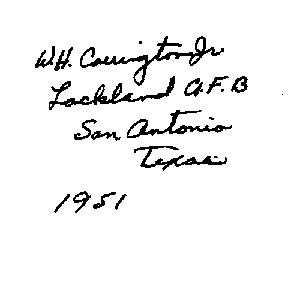 W.H. Carrington Jr.
Lackland A.F.B
San Antonio
Texas
1951